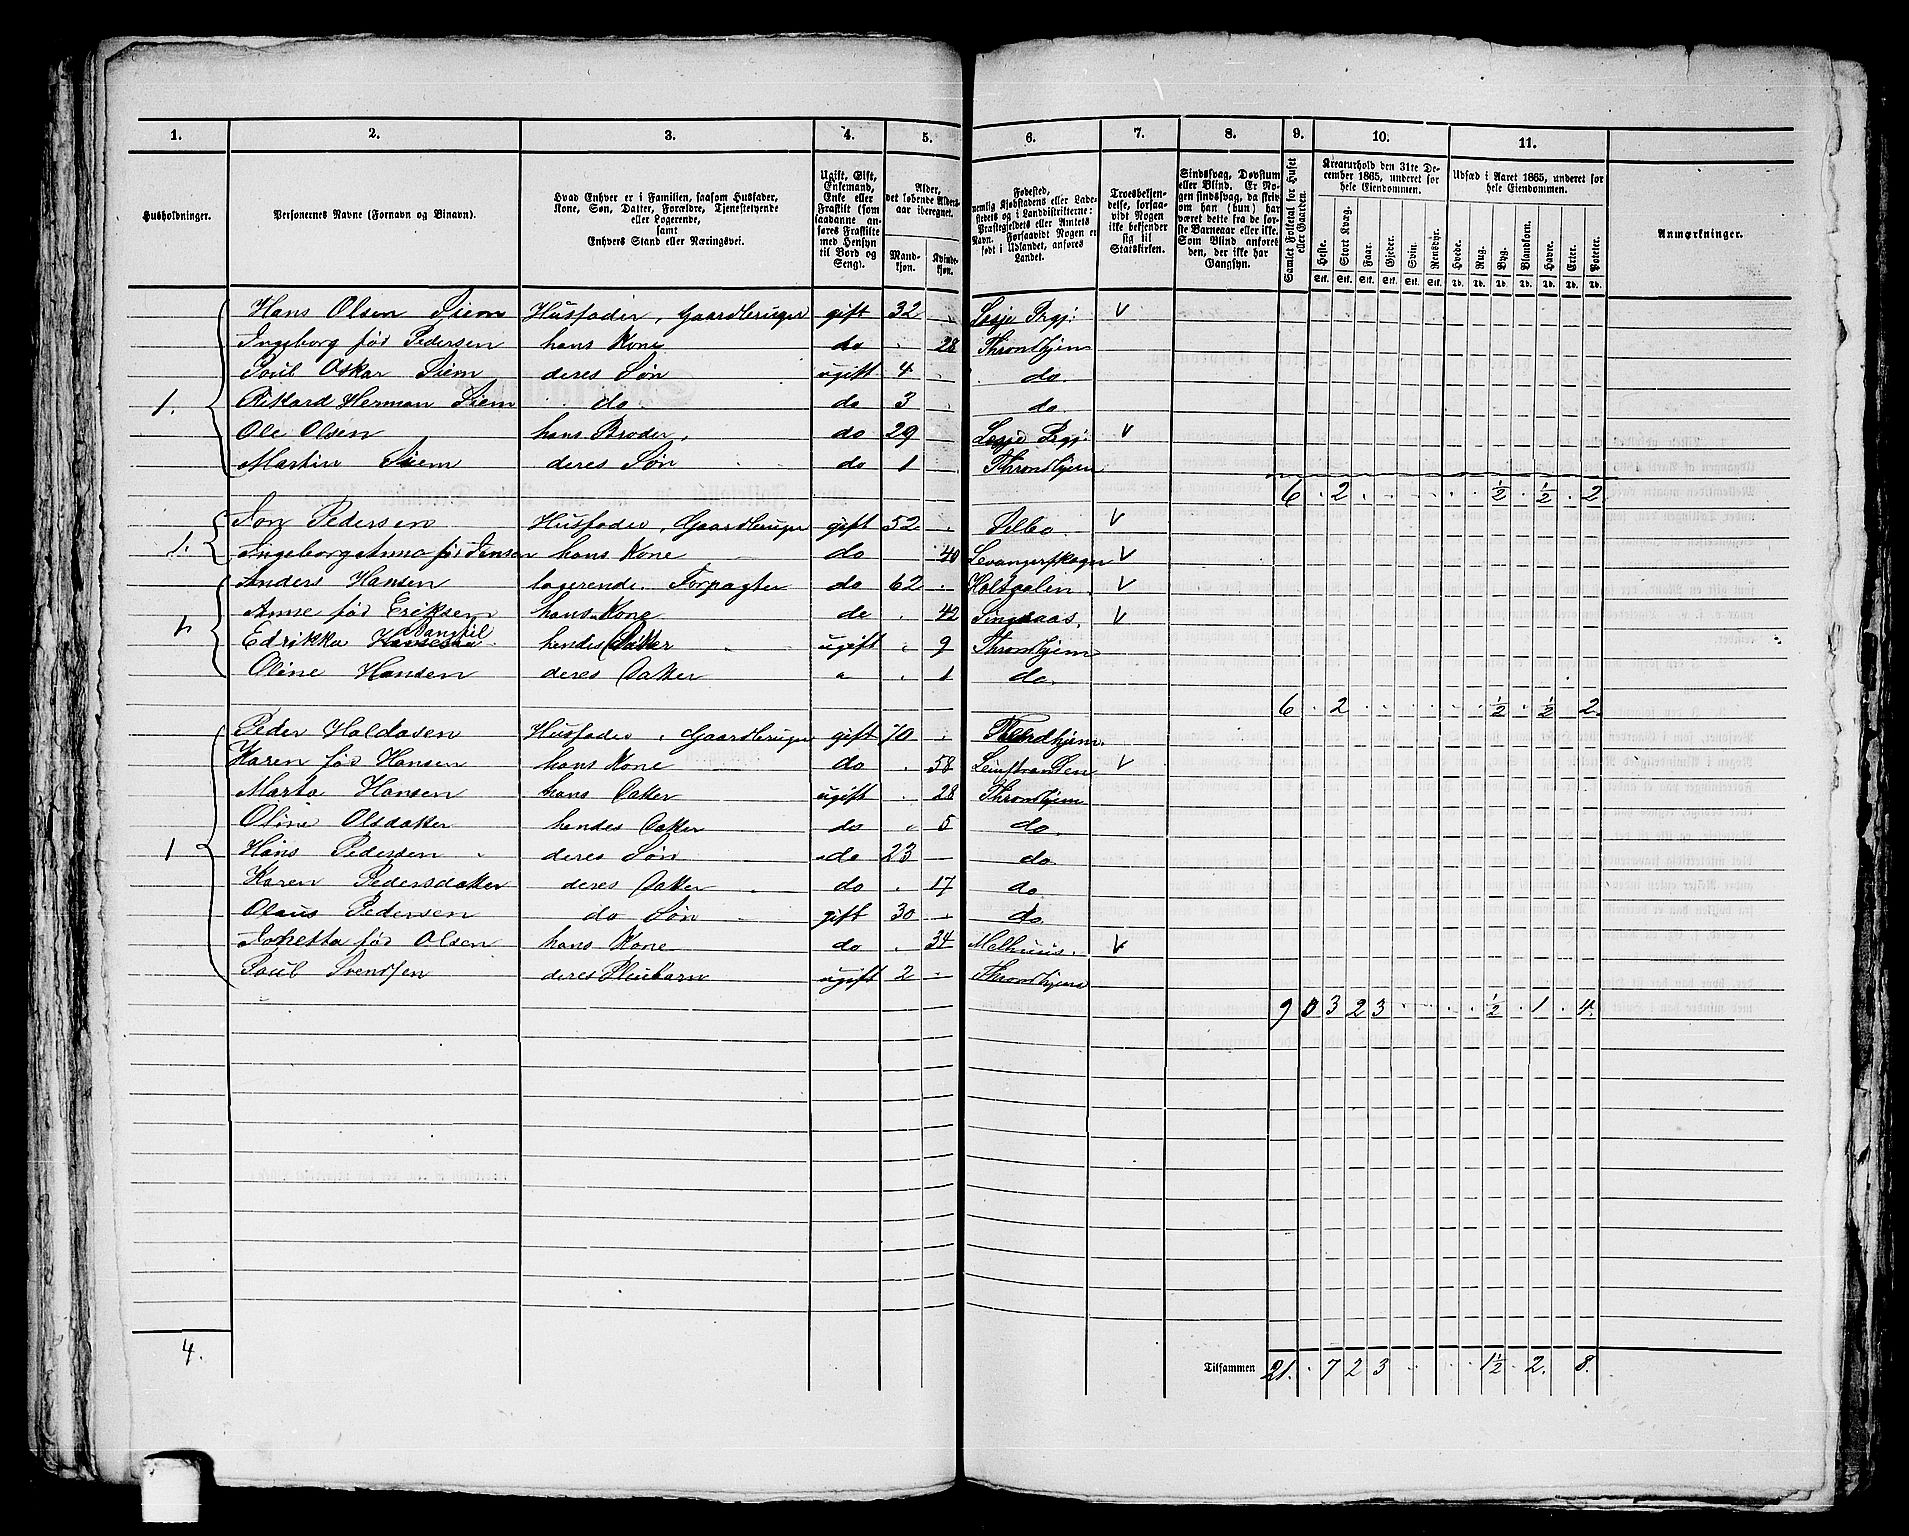 1. 2. 3. 4. 5. 6. 7. 8. 9. 10. 11.
Husholdninger.
Personernes Navne (Fornavn og Binavn).
Hvad Enhver er i Familien, saasom Husfader,
Kone, Søn, Datter, Forældre, Tjenestetyende
eller Logerende,
samt
Enhvers Stand eller Næringsvei.
Ugift, Gift,
Enkemand,
Enke eller
Fraskilt (som
saadanne an-
føres Fraskilte
med Hensyn
til Bord og
Seng).
Alder,
det løbende Alders-
aar iberegnet.
Mand-
kjøn.
Kvinde-
kjøn.
Fødested,
nemlig Kjøbstadens eller Lade-
stedets og i Landdistrikterne:
Præstegjeldets eller Amtets
Navn. Forsaavidt Nogen er
født i Udlandet, anføres
Landet.
Troesbekjen-
delse, forsaa-
vidt Nogen
ikke bekjender
sig til
Statskirken.
Sindssvag, Døvstum
eller Blind. Er No-
gen sindssvag, da skriv
om han (hun) har
været dette fra de før-
ste Barneaar eller ikke.
Som Blind anføres
den, der ikke har
Gangsyn.
Samlet Folketal for Huset
eller Gaarden.
Kreaturhold den 31te De-
cember 1865, underet for
hele Eiendommen.
Heste. Stort Kvæg. Faar. Gjeder. Svin. Rensdyr.
Stk. Stk. Stk. Stk. Stk. Stk.
Udsæd i Aaret 1865, underet for
hele Eiendommen.
Hvede. Rug. Byg. Blandkorn. Havre. Erter. Poteter.
Td. Td. Td. Td. Td. Td. Td.
Anmærkninger.
Hans Olsen Siem Husfader, Gaardbruger gift 32 Lesje Prgj: V
Ingeborg fød Pedersen hans Kone do 28 Throndhjem
Poul Oskar Siem deres Søn ugift 4 do.
1. Rikard Herman Siem do. do 3 do.
Ole Olsen hans Broder, do 29 Lesje Prgj: V
Martin Siem deres Søn do 1 Throndhjem
6 . 2 . . . . . ½ . ½ . 2
Jon Pedersen Husfader, Gaardbruger gift 52 Selbo. V
1. Ingeborg Anna fød Jensen hans Kone do 40 Levangerskogn V
Anders Hansen logerende. Forpagter do 62 Holtaalen. V
Anne fød Eriksen hans Kone do 42 Singsaas. V
1. Edrikka hendes Datter ugift 9 Throndhjem
Oline Hansen deres Datter 1 do.
6 . 2 . . . . . ½ . ½ . 2.
Peder Haldosen Husfader, Gaardbruger gift 70 Throndhjem.
Karen fød Hansen hans Kone do 58 Leinstranden V
Marta Hansen hans Datter ugift 28 Throndhjem
Oline Olsdatter hendes Datter do 5 do.
1 Hans Pedersen deres Søn do 23 do
Karen Pedersdatter deres Datter do 17 do
Olaus Pedersen do Søn gift 30 do.
fød Olsen hans Kone do 34 Melhuus. V
Poul Svendsen deres Pleiebarn ugift 2 Throndhjem
9 0 3 2 3 . . . . ½ . 1 . 4.
4.
Tilsammen 21. . 7 2 3 . . . 1½ . 2. 8.